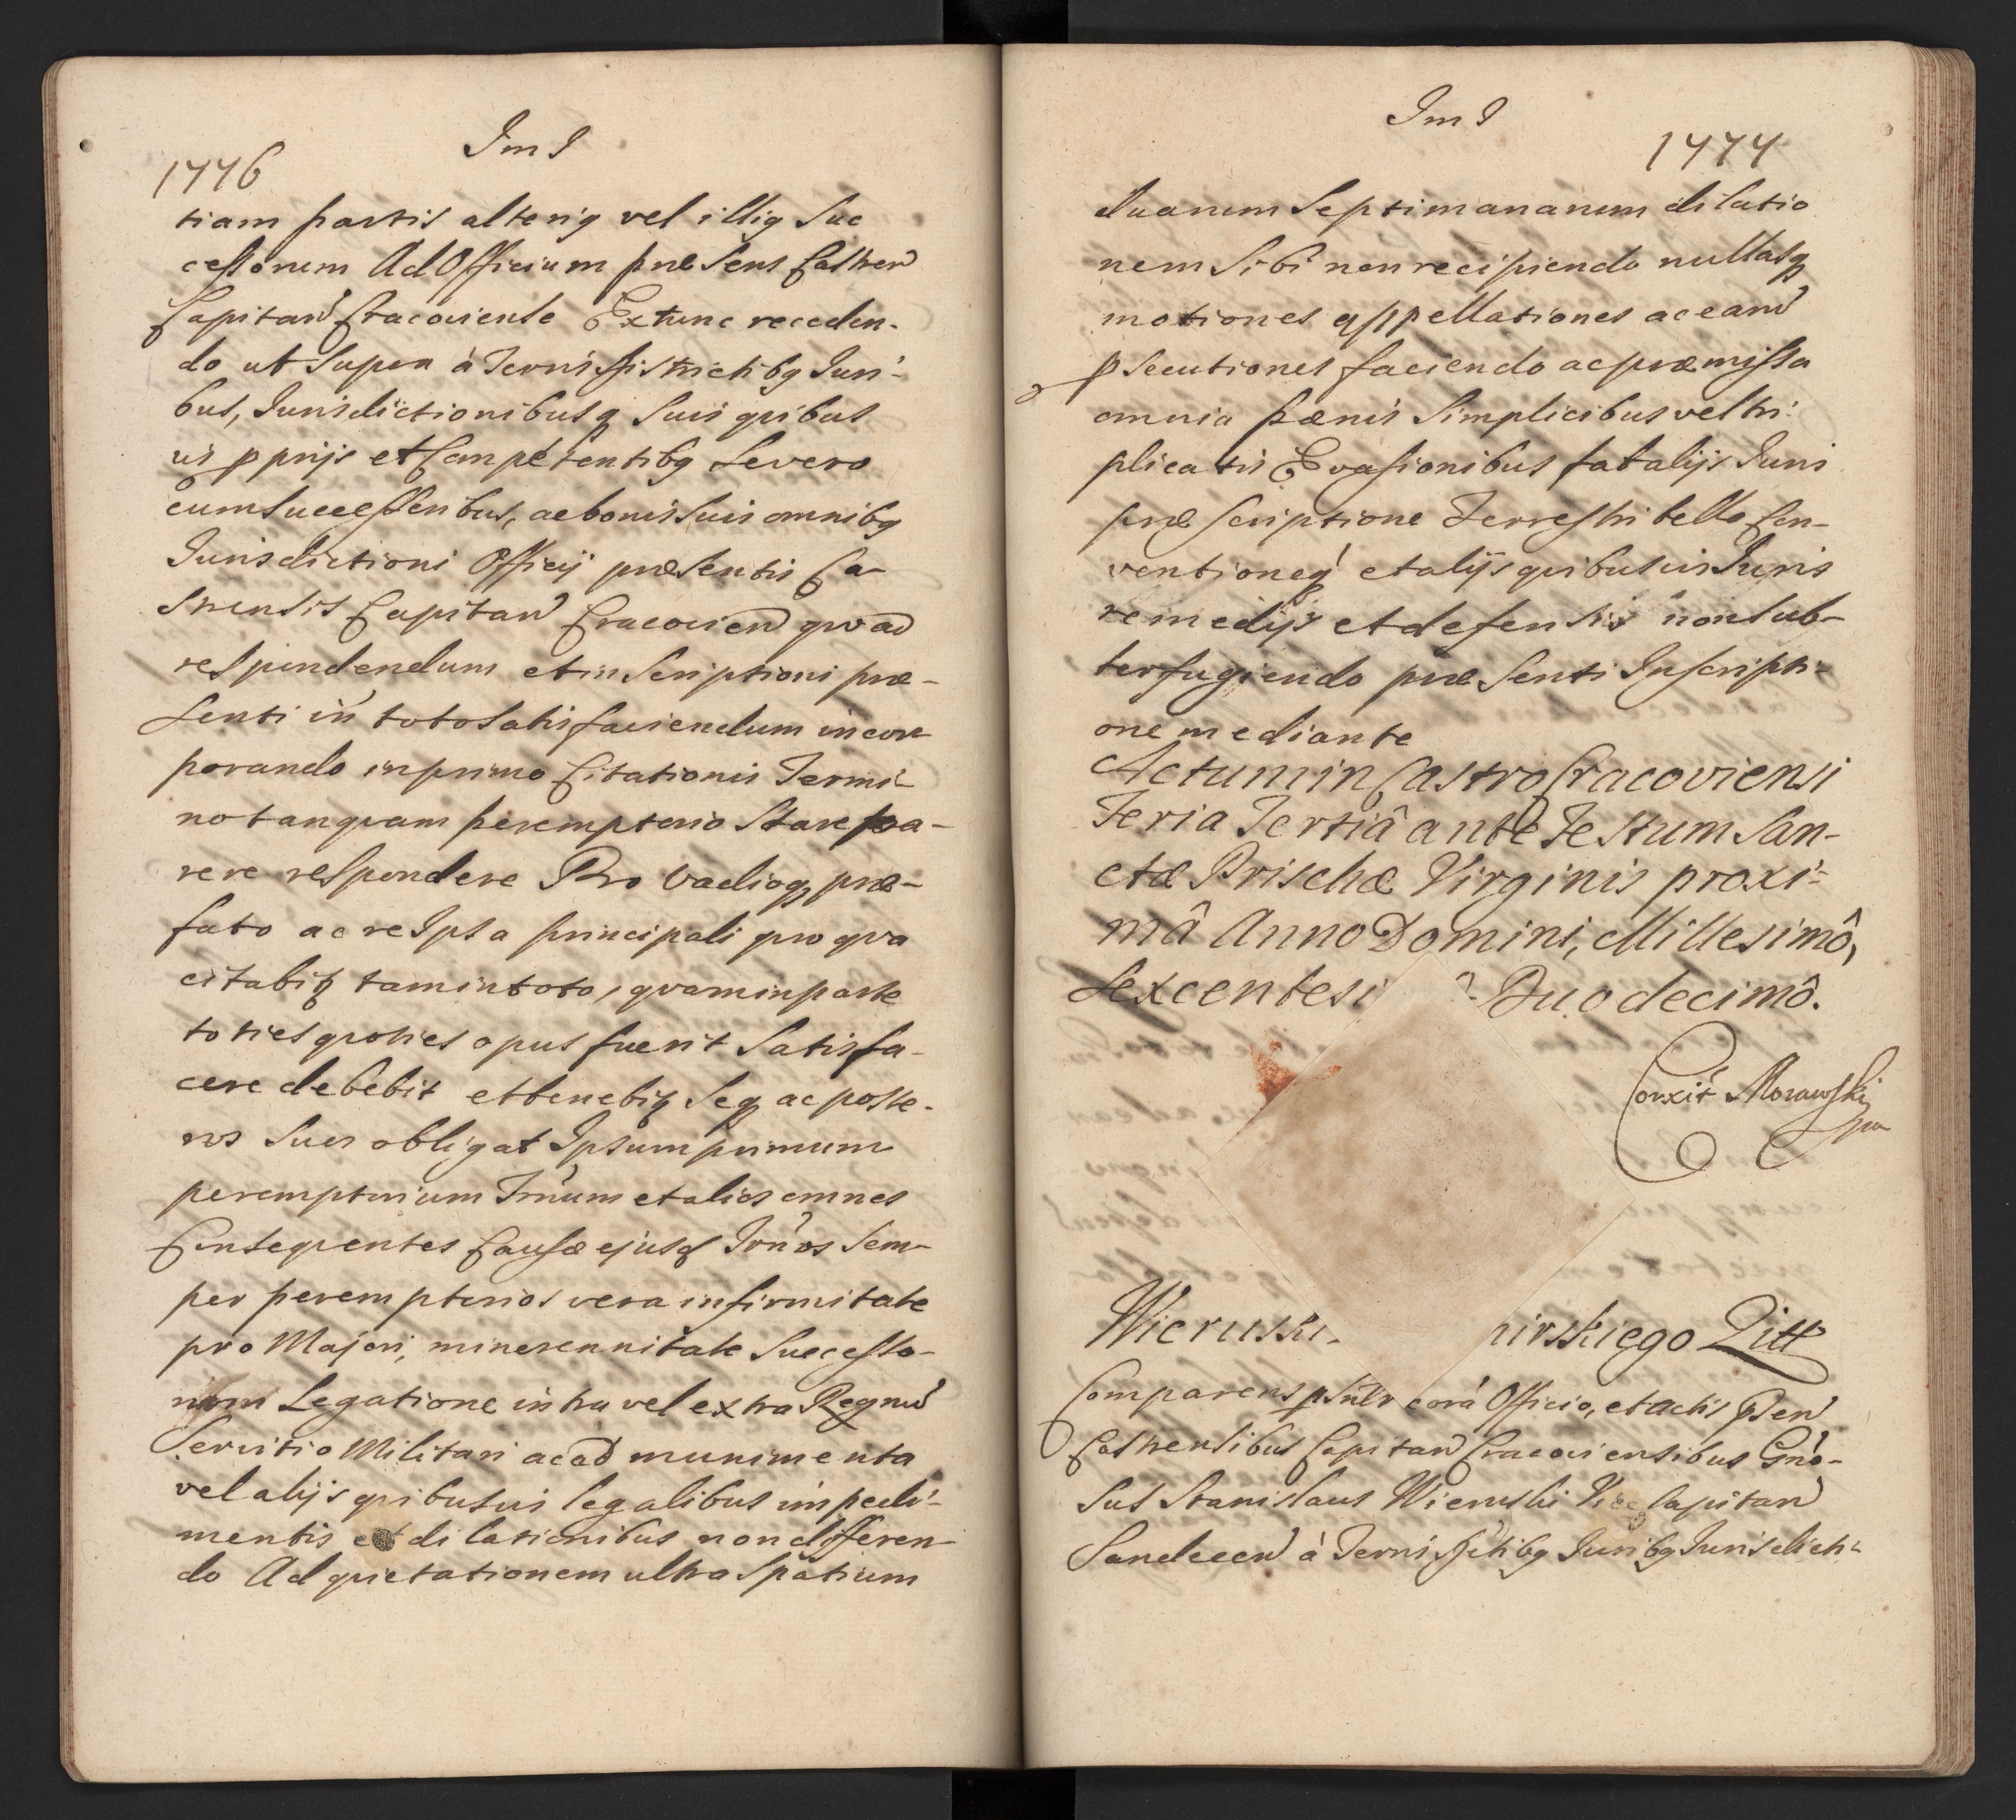 Im I
1776
tiam partis alteriq vel illiq Suc
cessorum Ad Officium præsens Castren
Capitan Cracoviense Extunc receden-
do ut Supra à Terris Districtibq Juri-
bus, Jurisdictionibusq Suis quibus
vis pprijs et Competentibq Se vero
cum Successoribus, ac bonis Suis omnibq
Jurisdictioni Officij præsentis Ca-
strensis Capitan Cracovien qvoad
respondendum et inscriptioni præ-
senti in toto Satisfaciendum incor-
porando in primo Citationis Termi-
no tanqvam peremptorio Stare pa-
rere respondere Pro vadioq præ-
fato ac re Ipsa principali pro qva
citabitq tam in toto, qvam in parte
toties qvoties opus fuerit Satisfa-
cere debebit et tenebitq Seq ac poste-
ros Suos obligat Ipsum primum
peremptorium Trnum et alios omnes
Conseqventes Causæ ejusd Trnos Sem-
per peremptorios vera infirmitate
pro Majori, minorennitate Successo-
rum Legatione intra vel extra Regnu
Servitio Militari ac ad munimenta
vel alijs qvibusvis legalibus impedi-
mentis et dilationibus non differen-
do Ad qvietationem ultra Spatium
Im I
1777
duarum Septimanarum dilatio
nem Sibi non recipiendo nullasq
motiones appellationes ac earu
psecutiones faciendo ac præmissa
omnia pænis Simplicibus vel tri-
plicatis Evasionibus fatalijs Juris
præscriptione Terrestri bello Con-
ventioneq et alijs qvibusvis Juris
remedijs et defensis non Sub-
terfugiendo præsenti Inscripti-
one mediante
Actum in Castro Cracoviensi
Feria Tertiâ ante Festum San-
ctæ Prischæ Virginis proxi-
mâ Anno Domini, Millesimô,
Sexcentesi Duodecimô.
Corxit Morawski
mpa
Wieruski nirskiego Qitt
Comparens psnlr cora Officio, et Actis Psen
Castrensibus Capitan Cracoviensibus Gno-
sus Stanislaus Wieruski Vice Capitan
Sandecen à Terris Distibq Juribq Jurisdicti-